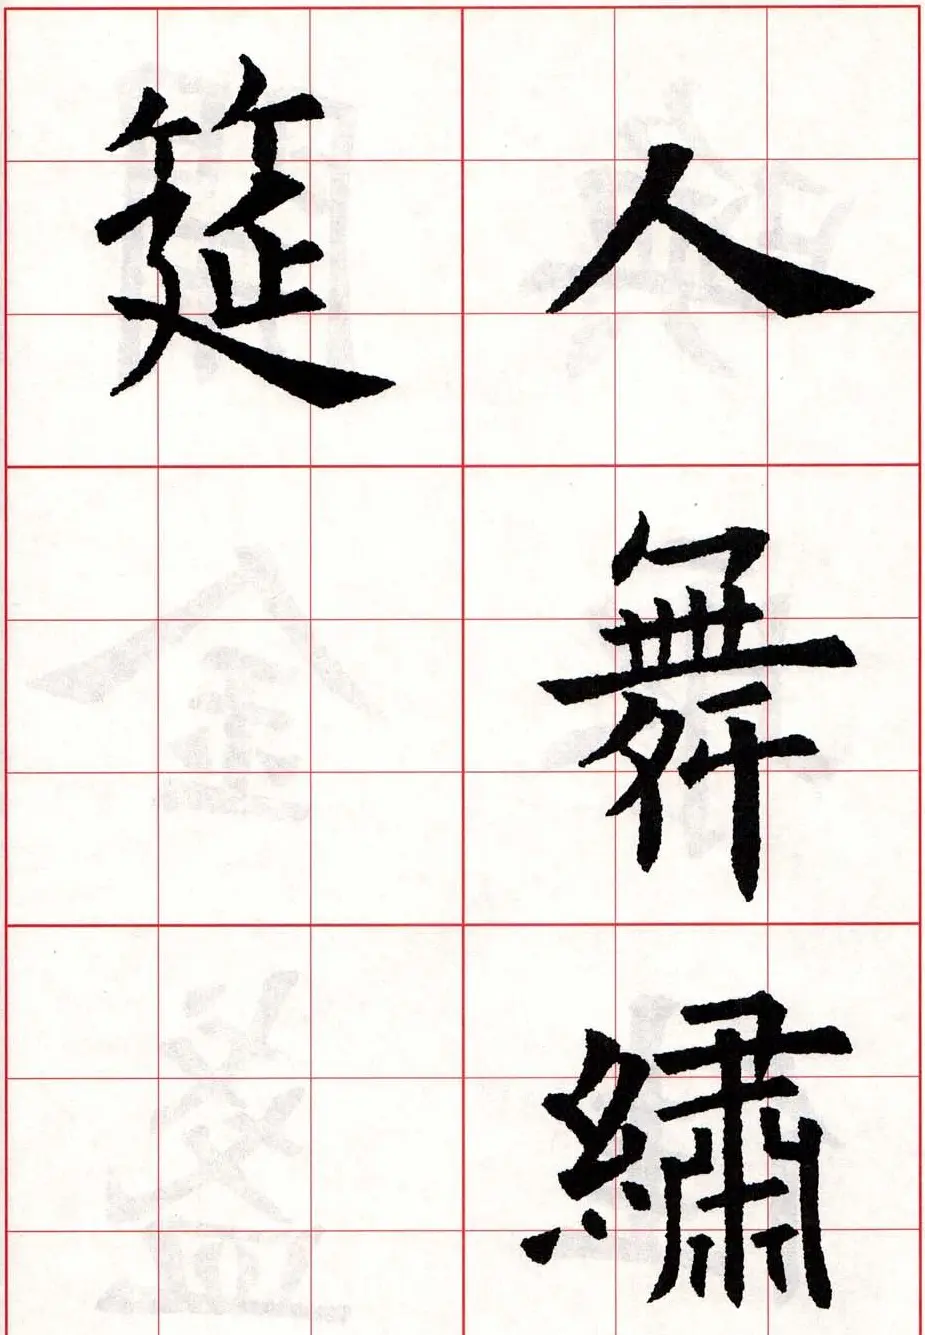 人舞繡
筵